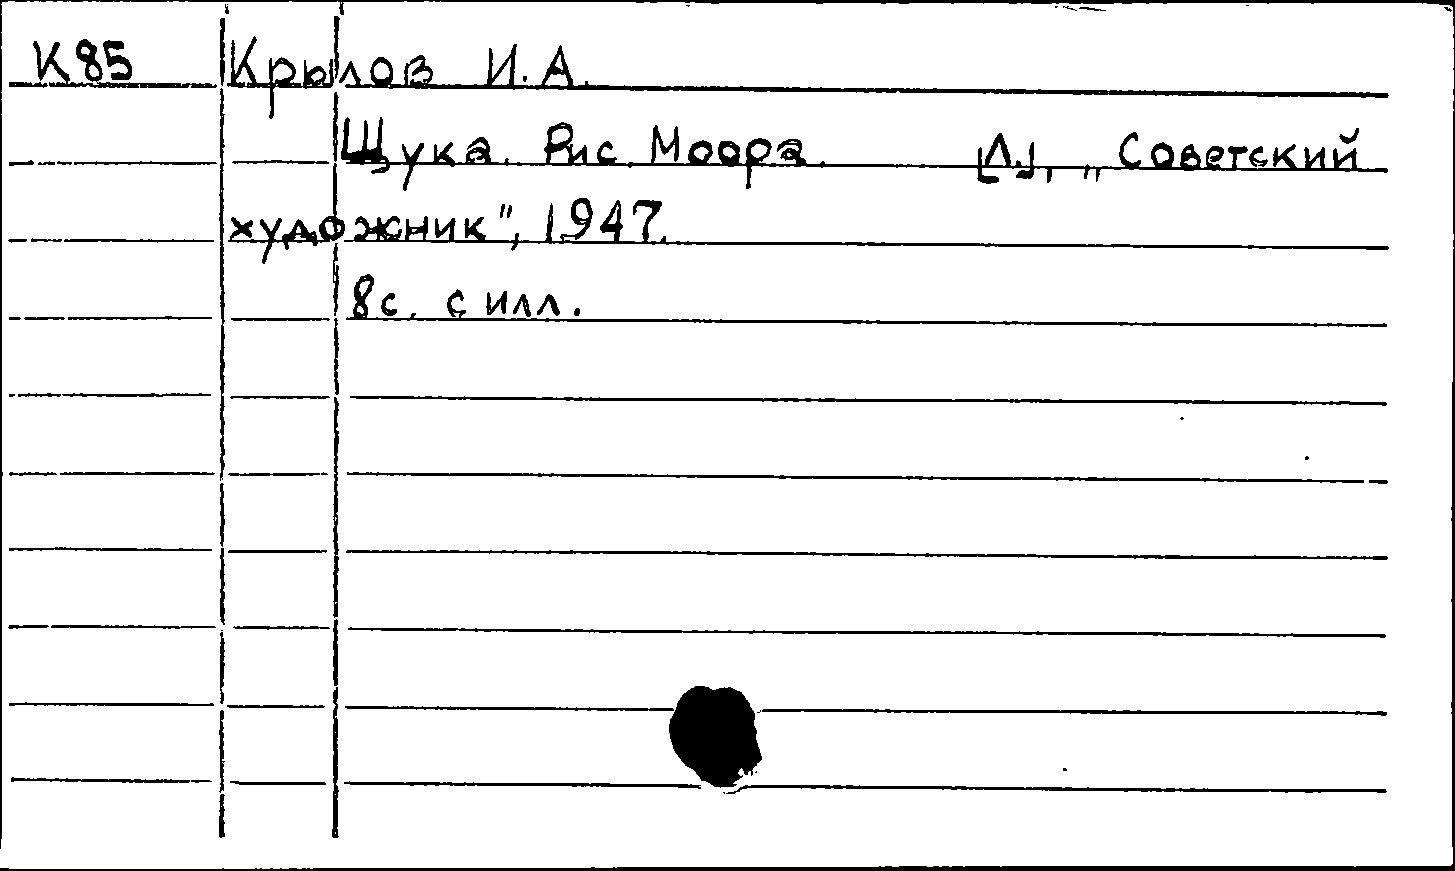 К85 Крылов И.А.
Щука. Рис. Моора. [Л.], „Советский
художник", 1947.
8с. с илл.